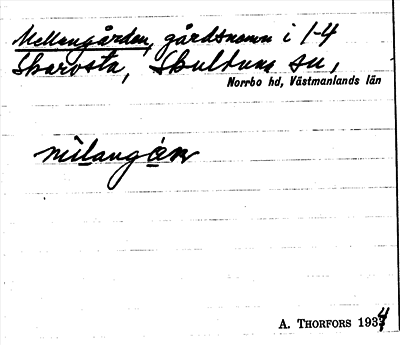 Mellangården, gårdsnamn i 1-4
Skarvsta, Skultuna sn,
Norrbo hd, Västmanlands län
mìlangán
A. THORFORS 1934